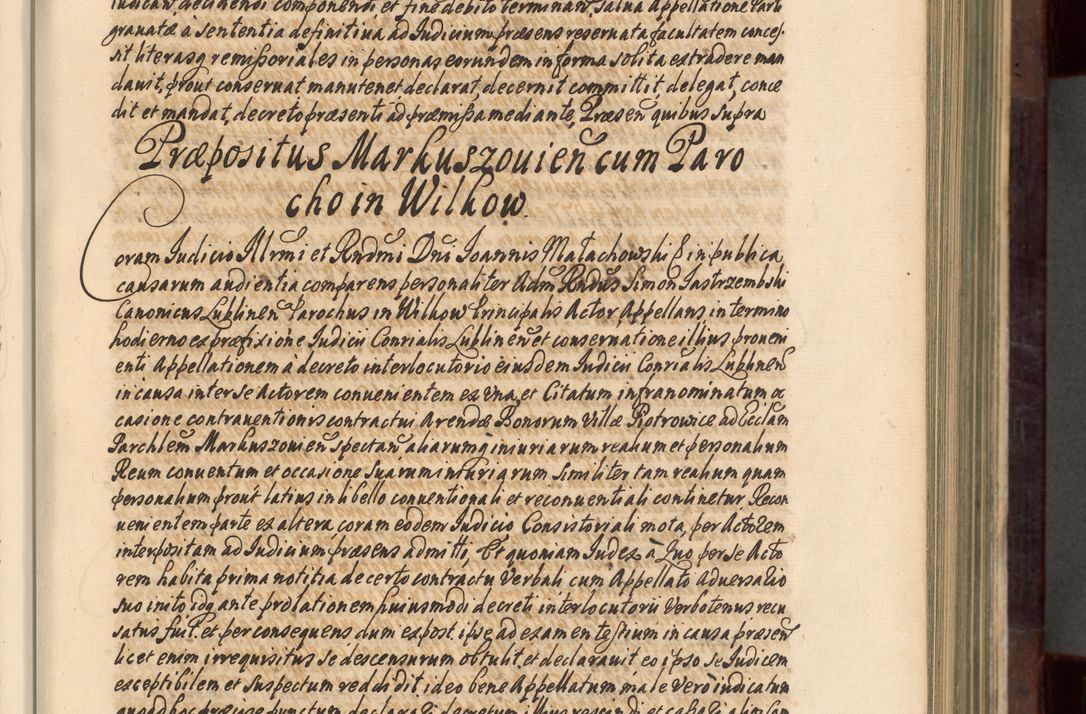 iudican, decidendi componendi et fine debito terminan, salua Appellatione Parti
grauatæ à sententia definitiua ad Iudicium præsens reseruata facultatem conces-
sit literasq remissoriales in personas eorundem in forma solita extradere man
dauit, prout conseruat manutenet declarat, decernit committit, delegat, conce
dit et mandat, decreto præsenti ad præmissa mediante, Præsen quibus supra
Præpositus Markuszouien cum Paro
cho in Wilkow.
Coram Iudicio Illrmi et Rndmi Dni Ioannis Małachowski E in publica
causarum audientia comparens personaliter Adm Rndus Simon Iastrzembski
Canonicus Lublinen Parochus in Wilkow Principalis Actor, Appellans in termino
hodierno ex præfixione Iudicii Conrialis Lublinen et conseruatione illius proueni
enti Appellationem à decreto interlocutorio eiusdem Iudicii Conrialis Lublinen
in causa inter se Actorem conuenientem ex vna, et Citatum infranominatum oc
casione contrauentionis contractui Arendæ Bonorum Villæ Piotrowice ad Ecclam
Parchlem Markuszouien spectan aliarumq iniuriarum realium et personalium
Reum conuentum et occasione suarum iniuriarum similiter tam realium quam
personalium prout latius in libello conuentionali et reconuentiali continetur Recon
uenientem parte ex altera, coram eodem Iudicio Consistoriali mota, per Actorem
interpositam ad Iudicium præsens admitti, Et quoniam Iudex à Quo per se Acto
rem habita prima notitia de certo contractu verbali cum Appellato Aduersario
suo inito idq ante prolationem huiusmodi decreti interlocutorii verbotenus recu
satus fuit et per consequens dum ex post ipse ad examen testium in causa præsen
licet enim irrequisitus se descensurum obtulit et declarauit eo ipso se Iudicem
exceptibilem et suspectum reddidit, ideo bene Appellatum male verò iudicatum